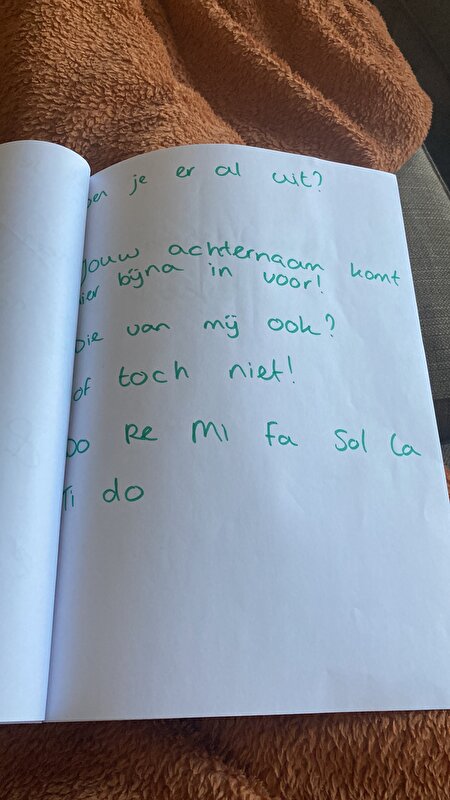 ben je er al uit?
Jouw achternaam komt
hier bijna in voor!
Die van mij ook?
of toch niet!
Do Re Mi fa Sol La
Ti do